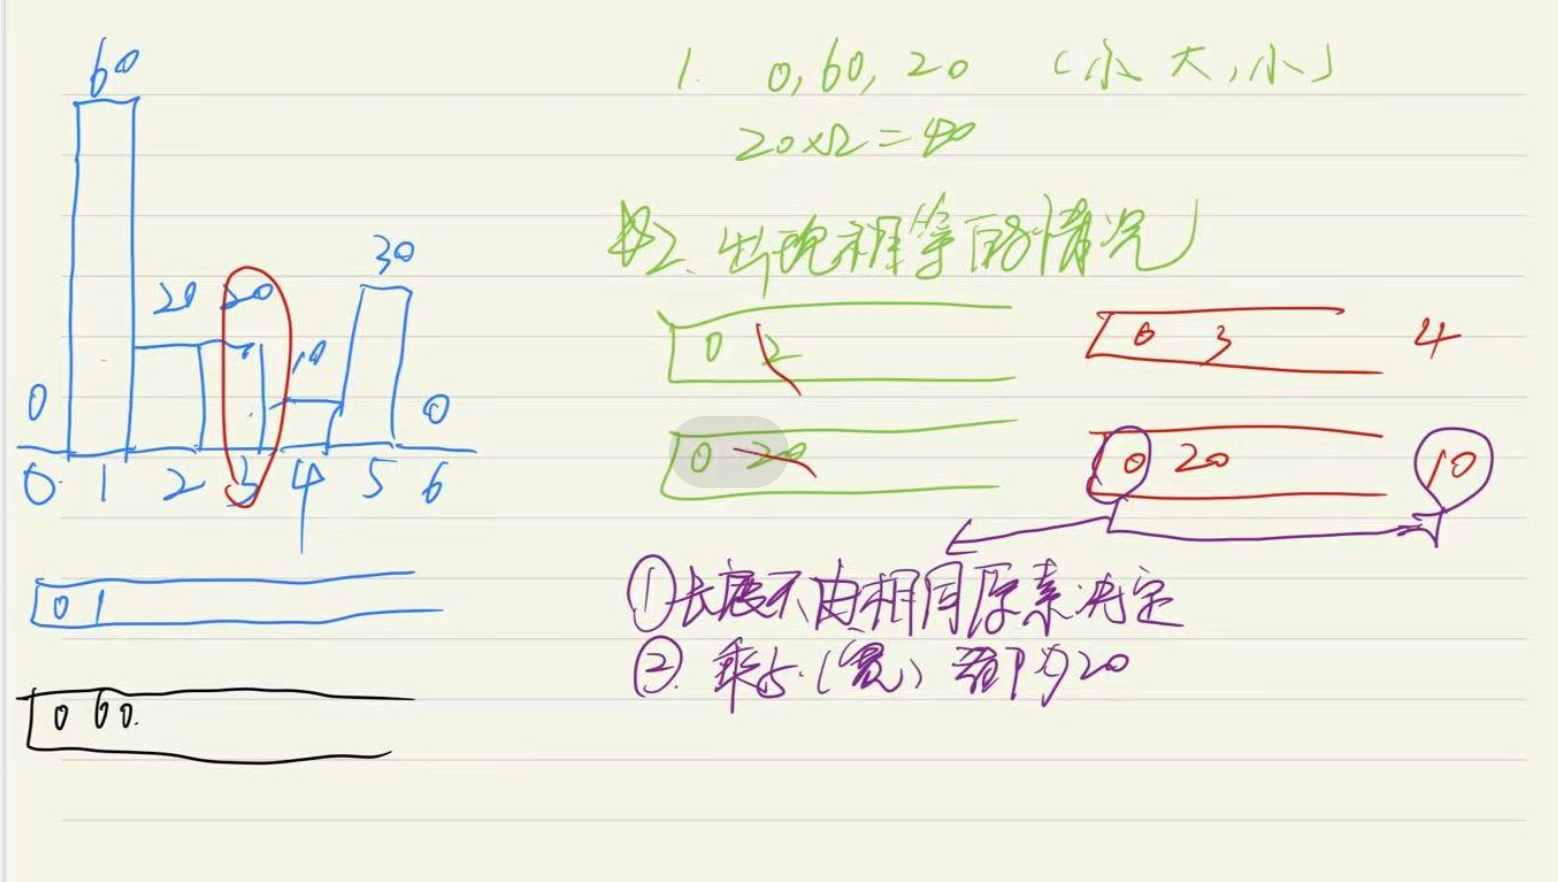 60
30
20 20
10
0 0
0 1 2 3 4 5 6
0 1
0 60.
1. 0, 60, 20 (小 大, 小)
20×2=40
2. 出现相等的情况
0 2
0 3 4
0 20
0 20 10
①长度不由相同原素决定
②. 乘与.(宽) 都为20